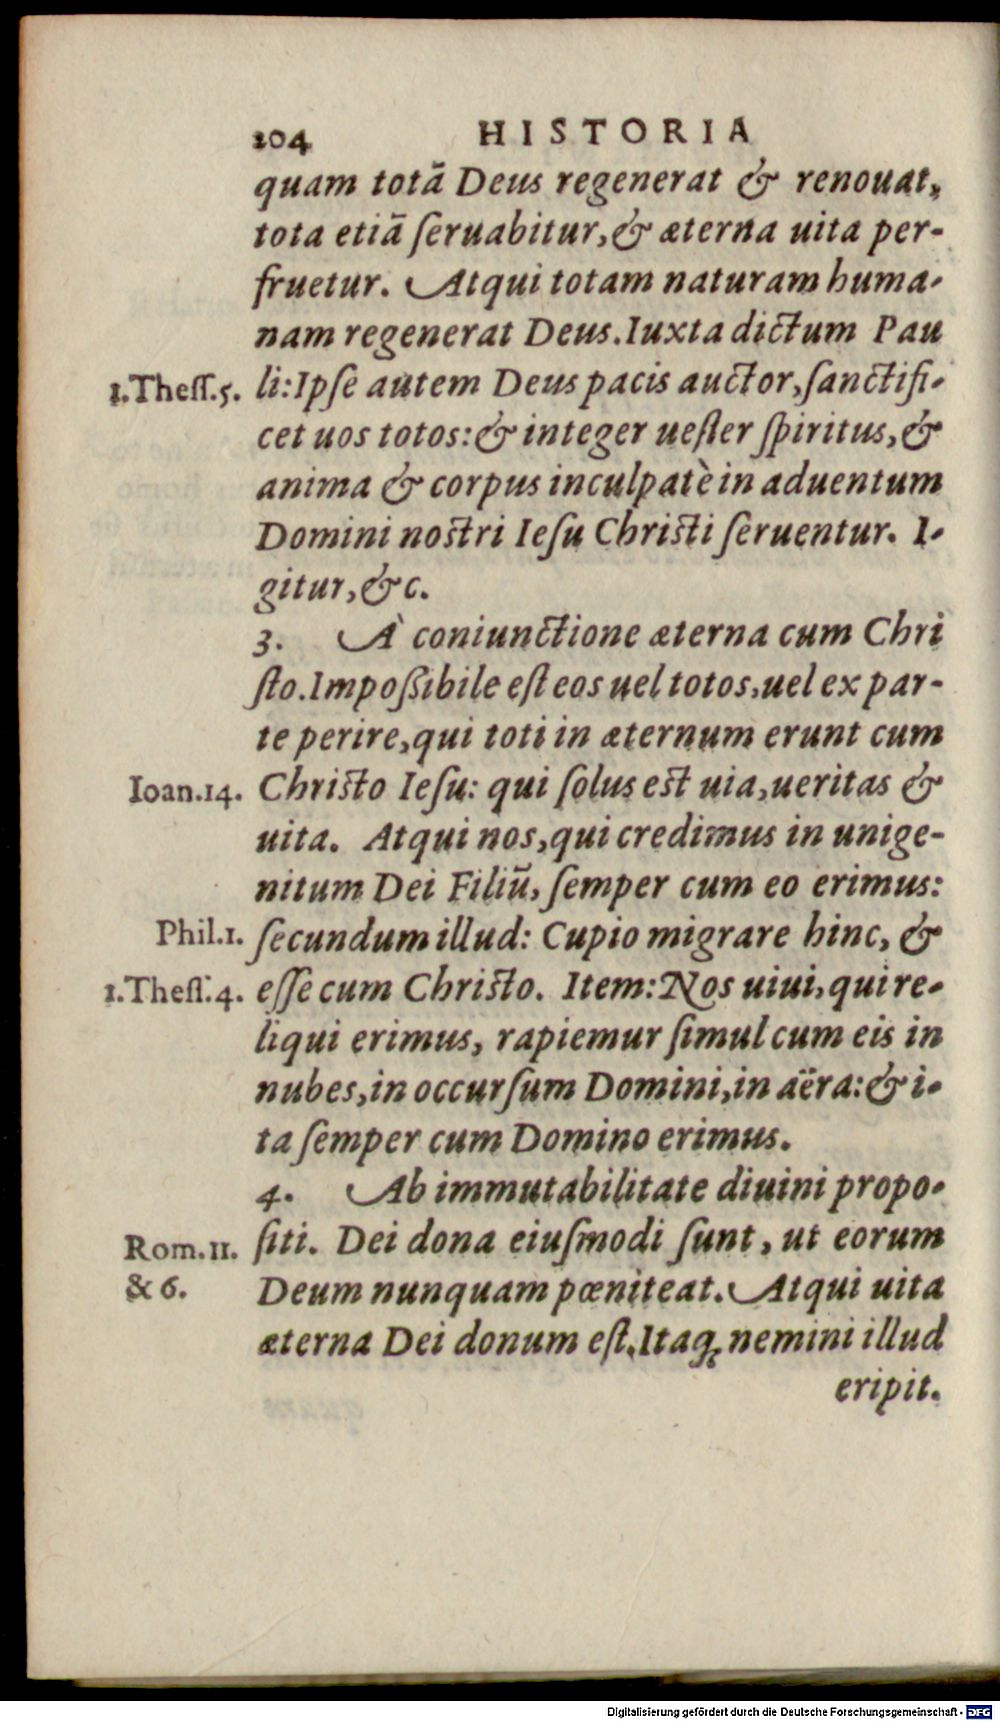 104 HISTORIA
quam totã Deus regenerat & renouat,
tota etiã ſeruabitur, & æterna uita per-
fruetur. Atqui totam naturam huma-
nam regenerat Deus. Iuxta dictum Pau
1.Theſſ.5. li: Ipſe autem Deus pacis auctor, ſanctifi-
cet uos totos: & integer ueſter ſpiritus, &
anima & corpus inculpatè in aduentum
Domini noſtri Ieſu Chriſti ſeruentur. I-
gitur, &c.
3. À coniunctione æterna cum Chri
ſto. Impoßibile eſt eos uel totos, uel ex par-
te perire, qui toti in æternum erunt cum
Ioan.14. Chriſto Ieſu: qui ſolus eſt uia, ueritas &
uita. Atqui nos, qui credimus in unige-
nitum Dei Filiũ, ſemper cum eo erimus:
Phil.1. ſecundum illud: Cupio migrare hinc, &
1.Theſſ.4. eſſe cum Chriſto. Item: Nos uiui, qui re-
liqui erimus, rapiemur ſimul cum eis in
nubes, in occurſum Domini, in aëra: & i-
ta ſemper cum Domino erimus.
4. Ab immutabilitate diuini propo-
Rom.11. ſiti. Dei dona eiuſmodi ſunt, ut eorum
& 6. Deum nunquam pœniteat. Atqui uita
æterna Dei donum eſt. Itaq; nemini illud
eripit.
Digitalisierung gefördert durch die Deutsche Forschungsgemeinschaft - DFG